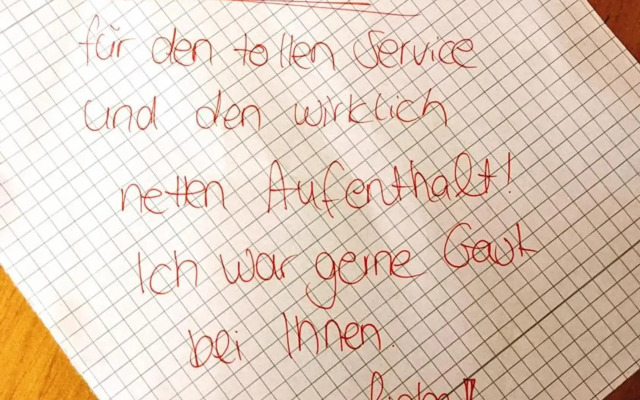 für den tollen Service
und den wirklich
netten Aufenthalt!
Ich war gerne Gast
bei Ihnen.